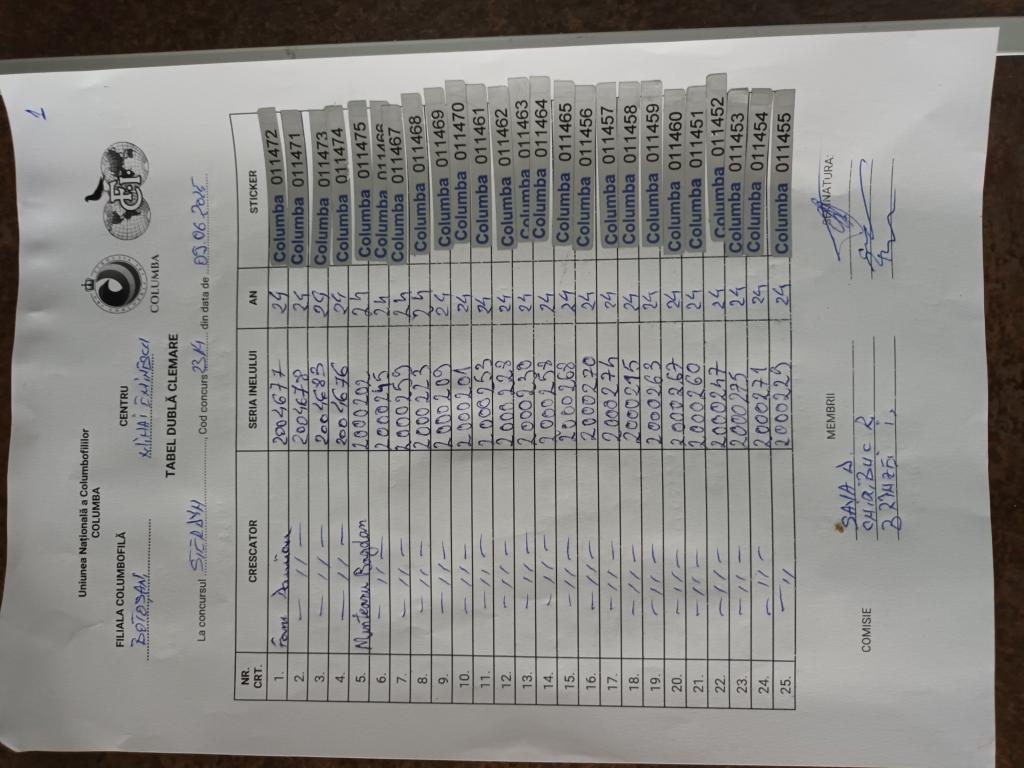 1
Uniunea Națională a Columbofililor
COLUMBA
COLUMBA
FILIALA COLUMBOFILĂ CENTRU
BOTOȘANI MIHAI EMINESCU
TABEL DUBLĂ CLEMARE
La concursul Cod concurs din data de 09.06.2025
NR. CRT. CRESCATOR SERIA INELULUI AN STICKER
1. 2004677 24 Columba 011472
2. -11- 24 Columba 011471
3. -11- 2004683 24 Columba 011473
4. -11- 2004676 24 Columba 011474
5. Munteanu Bogdan 2000202 24 Columba 011475
6. -11- 2000245 24 Columba 011466
7. -11- 2000259 24 Columba 011467
8. -11- 2000223 24 Columba 011468
9. -11- 2000209 24 Columba 011469
10. -11- 2000201 24 Columba 011470
11. -11- 2000253 24 Columba 011461
12. -11- 2000228 24 Columba 011462
13. -11- 2000230 24 Columba 011463
14. -11- 2000258 24 Columba 011464
15. -11- 2000268 24 Columba 011465
16. -11- 2000270 24 Columba 011456
17. -11- 2000274 24 Columba 011457
18. -11- 2000215 24 Columba 011458
19. -11- 2000263 24 Columba 011459
20. -11- 2000267 24 Columba 011460
21. -11- 2000260 24 Columba 011451
22. -11- 2000247 24 Columba 011452
23. -11- 2000275 24 Columba 011453
24. -11- 2000271 24 Columba 011454
25. -11 2000229 24 Columba 011455
COMISIE MEMBRII SEMNATURA:
SAVA D